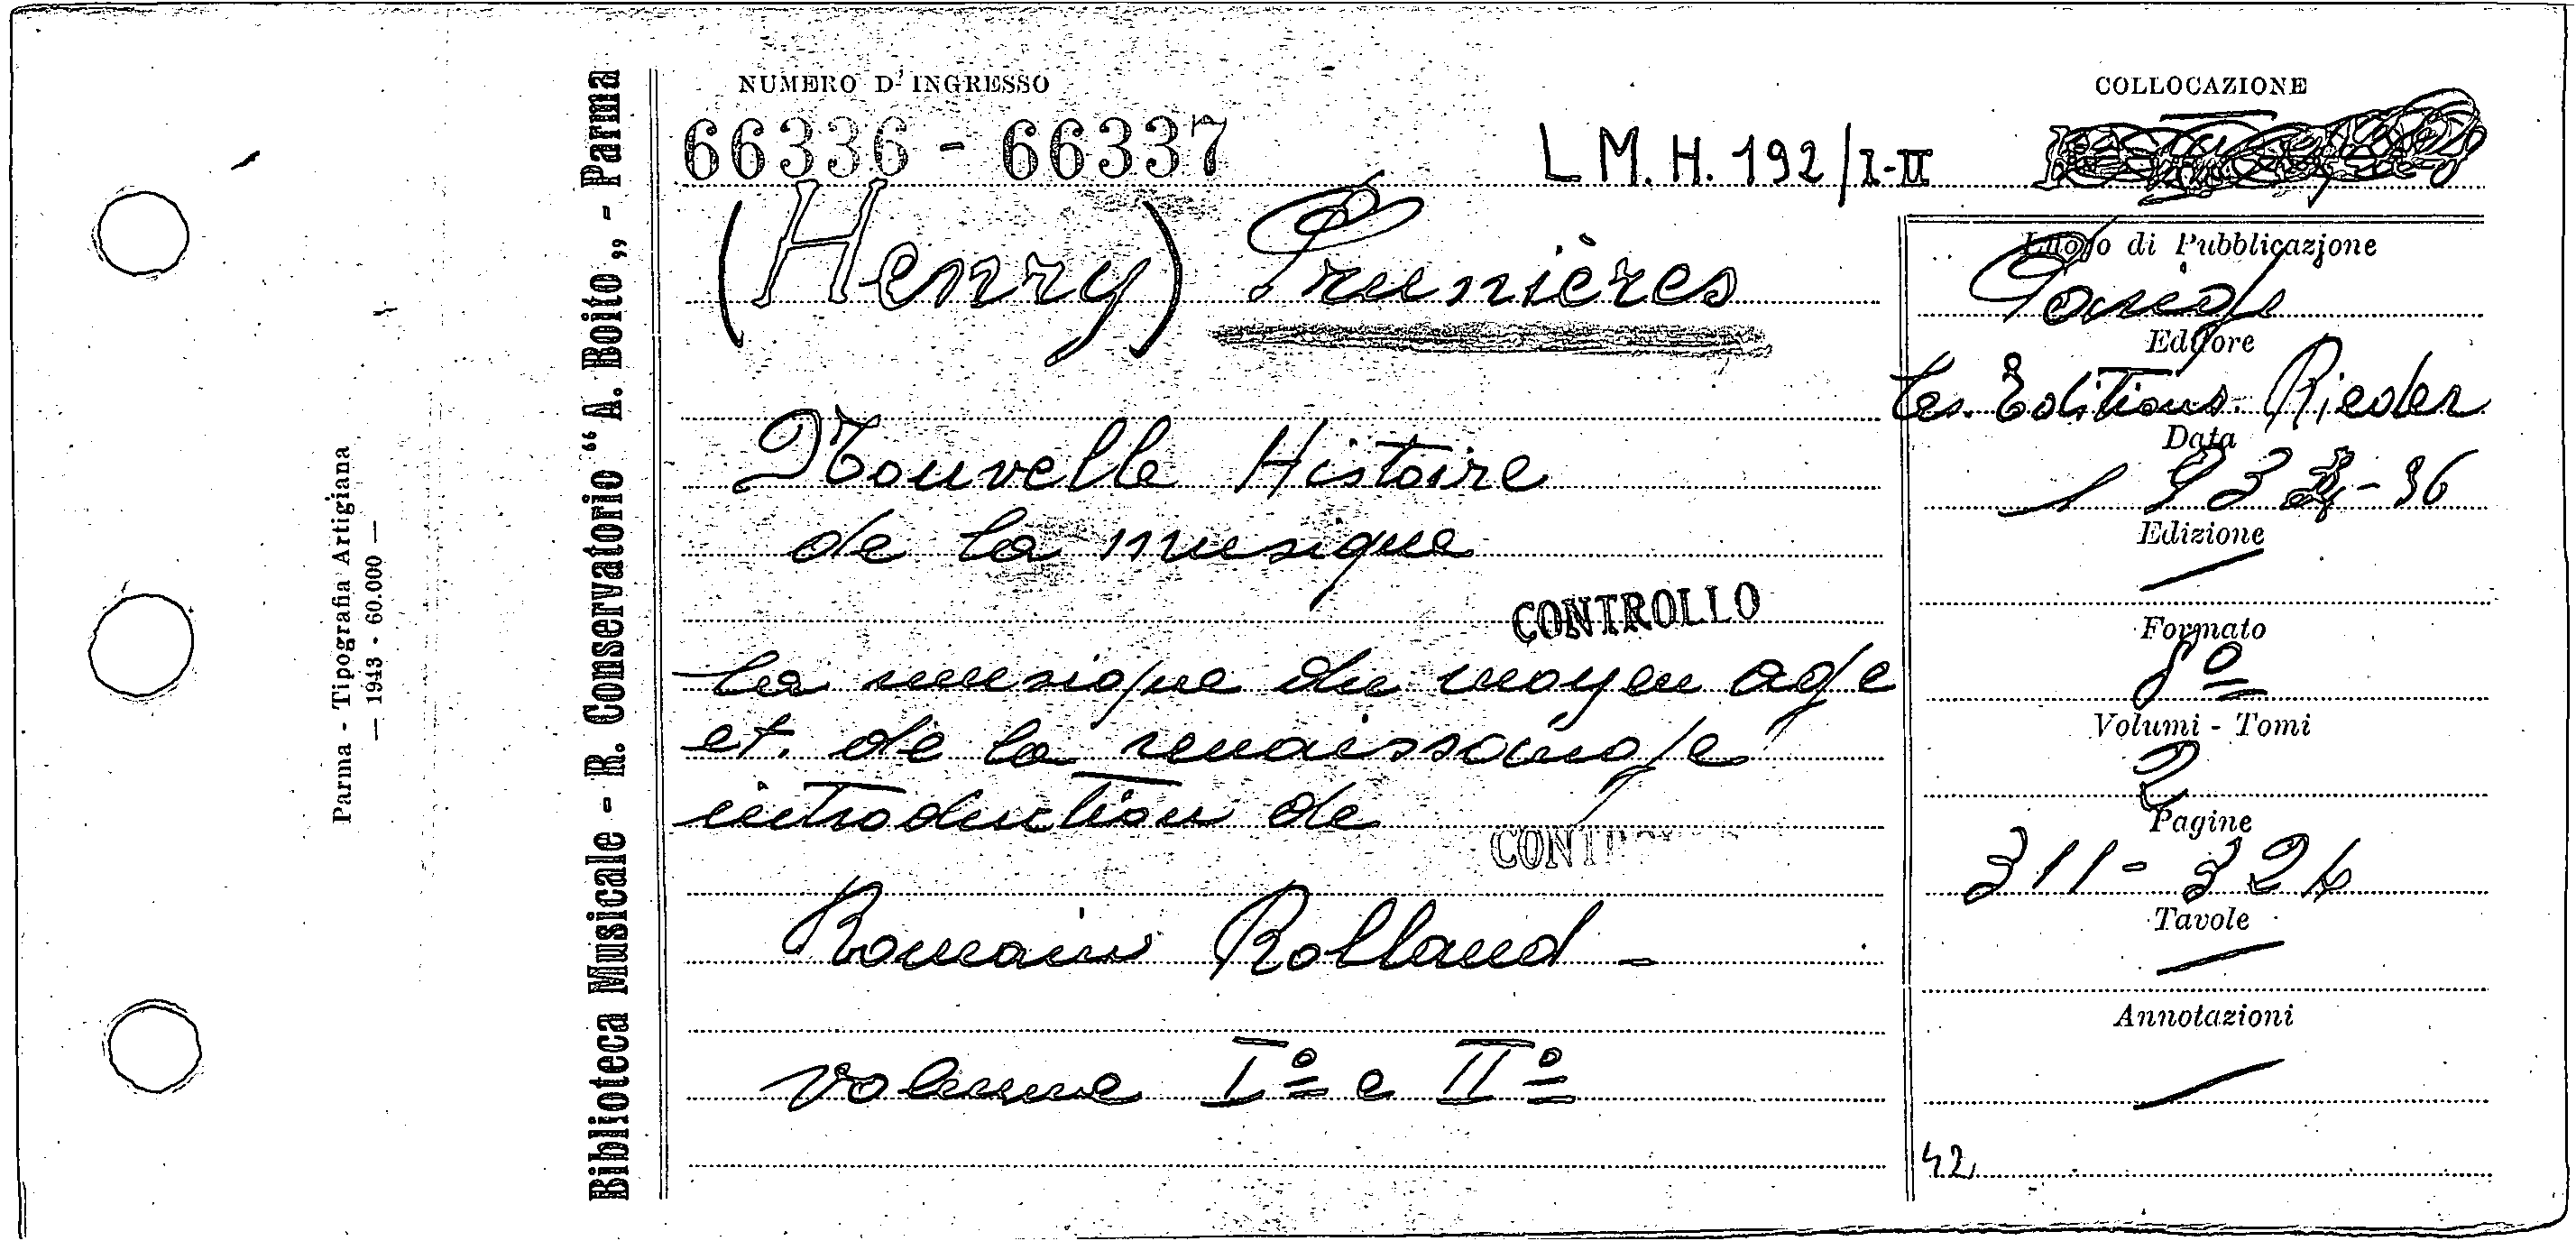 NUMERO D'INGRESSO
66336 - 66337
L M. H. 192/I-II
COLLOCAZIONE
(Henry) Prunières
Nouvelle Histoire
de la musique
CONTROLLO
La musique du moyen age
et. de la renaissance
introduction de
CONTRO
Romain Rolland -
volume Iº e IIº
Luogo di Pubblicazione
Paris
Editore
Les. Editions. Rieder
Data
1934-36
Edizione
Formato
8º
Volumi - Tomi
2
Pagine
311 - 324
Tavole
Annotazioni
42
Biblioteca Musicale - R. Conservatorio "A. Boito„ - Parma
Parma - Tipografia Artigiana
— 1943 - 60.000 —